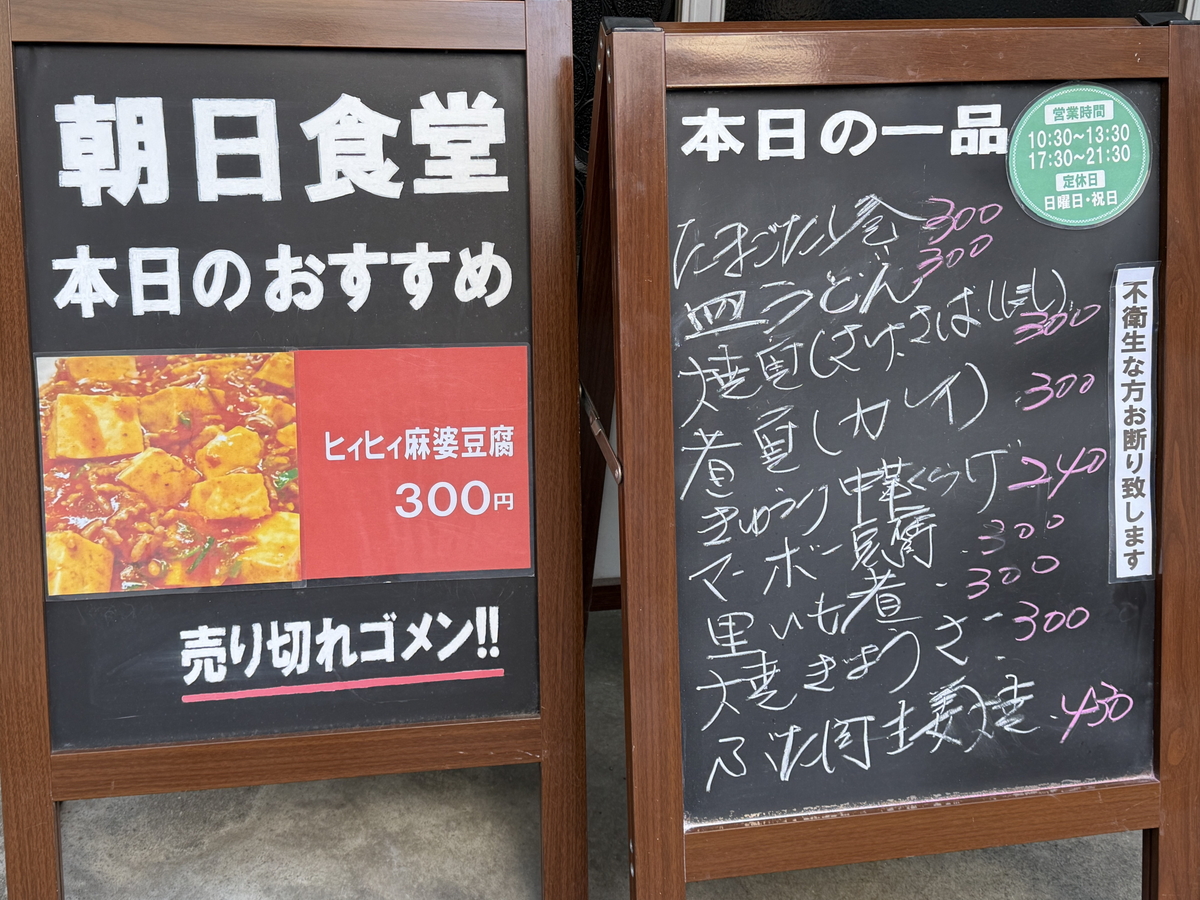 朝日食堂
本日のおすすめ
ヒィヒィ麻婆豆腐
300円
売り切れゴメン!!
本日の一品
営業時間
10:30〜13:30
17:30〜21:30
定休日
日曜日・祝日
たまごだし巻 300
皿うどん 300
焼魚(さけ、さば、ほし) 300
煮魚(カレイ) 300
きゅうり中華くらげ 240
マーボー豆腐 300
里いも煮 300
焼きぎょうざ 300
ぶた肉生姜焼 430
不衛生な方お断り致します